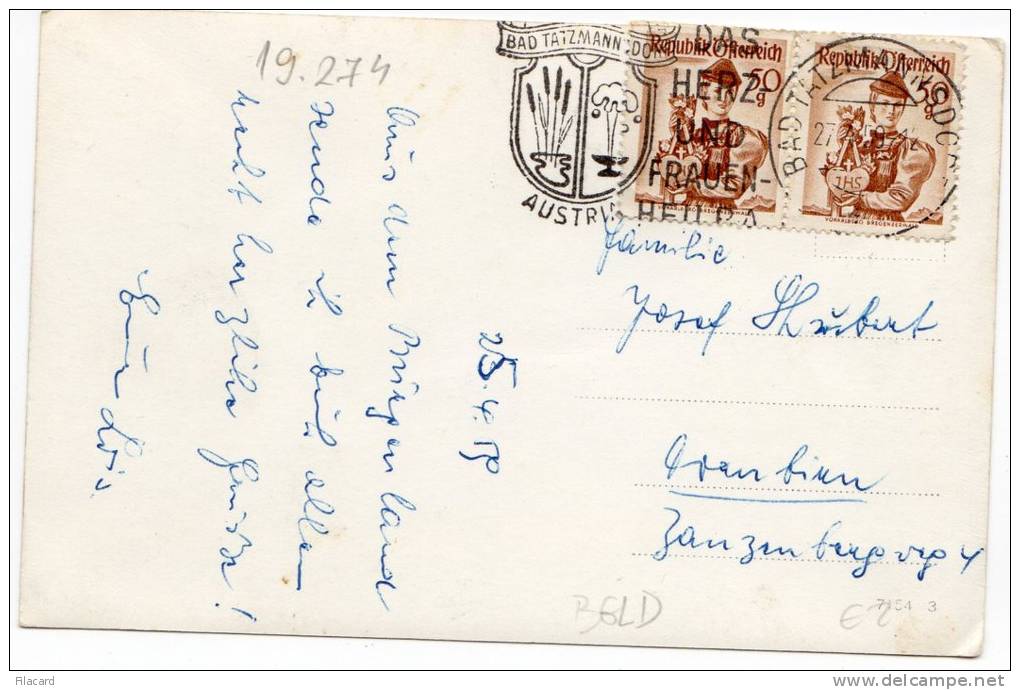 19.274
BAD TATZMANNSDO
AUSTRIA
DAS
HERZ-
UND
FRAUEN-
HEILBA
Republik Österreich
50
g
Republik Österreich
50
g
IHS
VORARLBERG BREGENZERWALD
BAD TATZMANNSDO
27. 59-12
Aus dem Burgenland
sende ich Euch allen
recht herzliche Grüsse!
Eure Lois.
25.4.59
Familie
Josef Schubert
Dornbirn
Zanzenbergweg 4
BGLD
7154 3
€2
Filacard
www.delcampe.net